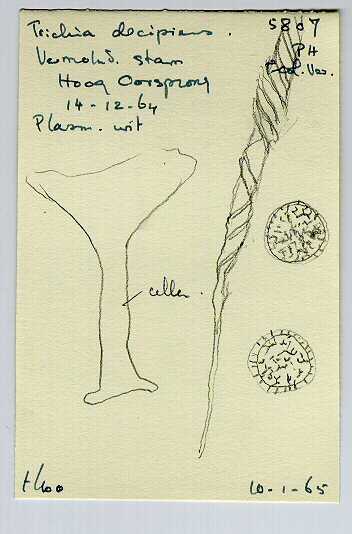 Trichia decipiens.
Vermolmd. stam
Hoog Oorsprong
14-12-64
Plasm. wit
5807
PH
cellen.
t/400
10-1-65